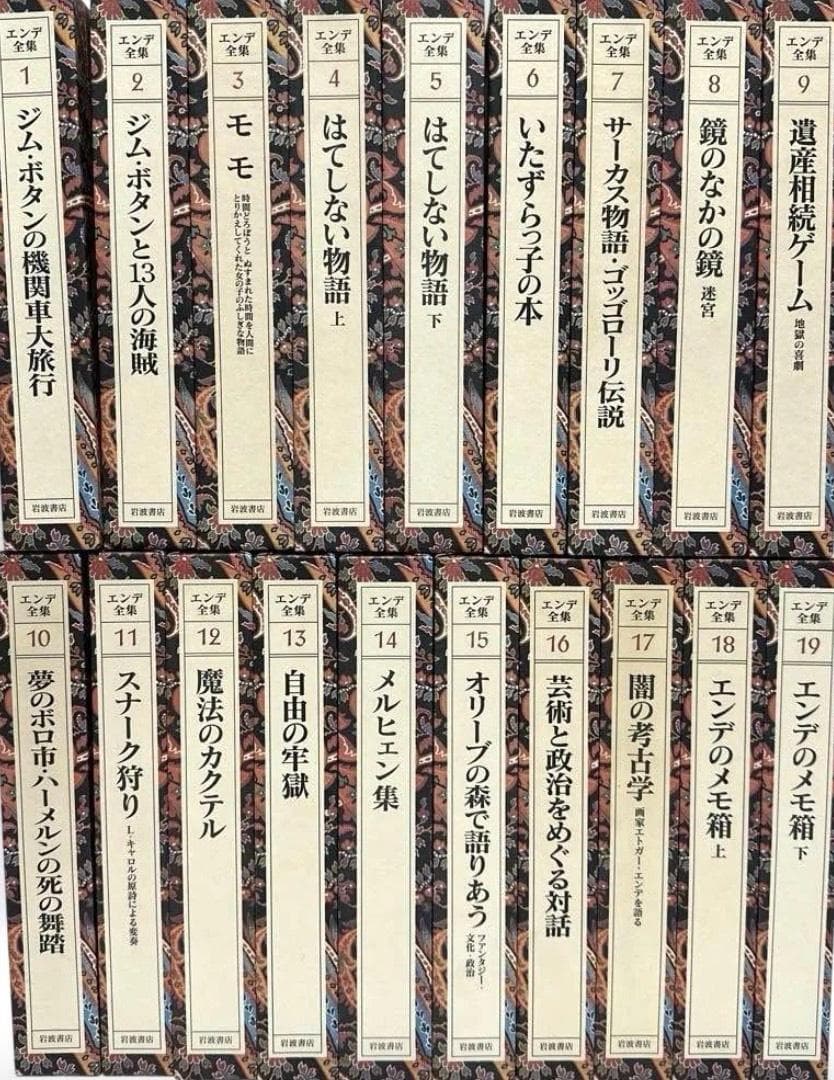 エンデ
全集
1
ジム・ボタンの機関車大旅行
岩波書店
エンデ
全集
2
ジム・ボタンと13人の海賊
岩波書店
エンデ
全集
3
モモ
時間どろぼうと ぬすまれた時間を人間に
とりかえしてくれた女の子のふしぎな物語
岩波書店
エンデ
全集
4
はてしない物語 上
岩波書店
エンデ
全集
5
はてしない物語 下
岩波書店
エンデ
全集
6
いたずらっ子の本
岩波書店
エンデ
全集
7
サーカス物語・ゴッゴローリ伝説
岩波書店
エンデ
全集
8
鏡のなかの鏡 迷宮
岩波書店
エンデ
全集
9
遺産相続ゲーム 地獄の喜劇
岩波書店
エンデ
全集
10
夢のボロ市・ハーメルンの死の舞踏
岩波書店
エンデ
全集
11
スナーク狩り L・キャロルの原詩による変奏
岩波書店
エンデ
全集
12
魔法のカクテル
岩波書店
エンデ
全集
13
自由の牢獄
岩波書店
エンデ
全集
14
メルヒェン集
岩波書店
エンデ
全集
15
オリーブの森で語りあう
ファンタジー・
文化・政治
岩波書店
エンデ
全集
16
芸術と政治をめぐる対話
岩波書店
エンデ
全集
17
闇の考古学 画家エトガー・エンデを語る
岩波書店
エンデ
全集
18
エンデのメモ箱 上
岩波書店
エンデ
全集
19
エンデのメモ箱 下
岩波書店